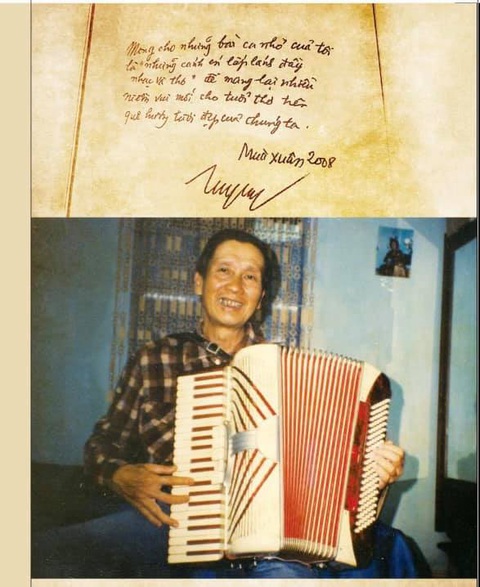 Mong cho những bài ca nhỏ của tôi
là "những cánh én lấp lánh đầy
nhạc và thơ" để mang lại nhiều
niềm vui mới cho tuổi thơ trên
quê hương tươi đẹp của chúng ta.
Mùa xuân 2008